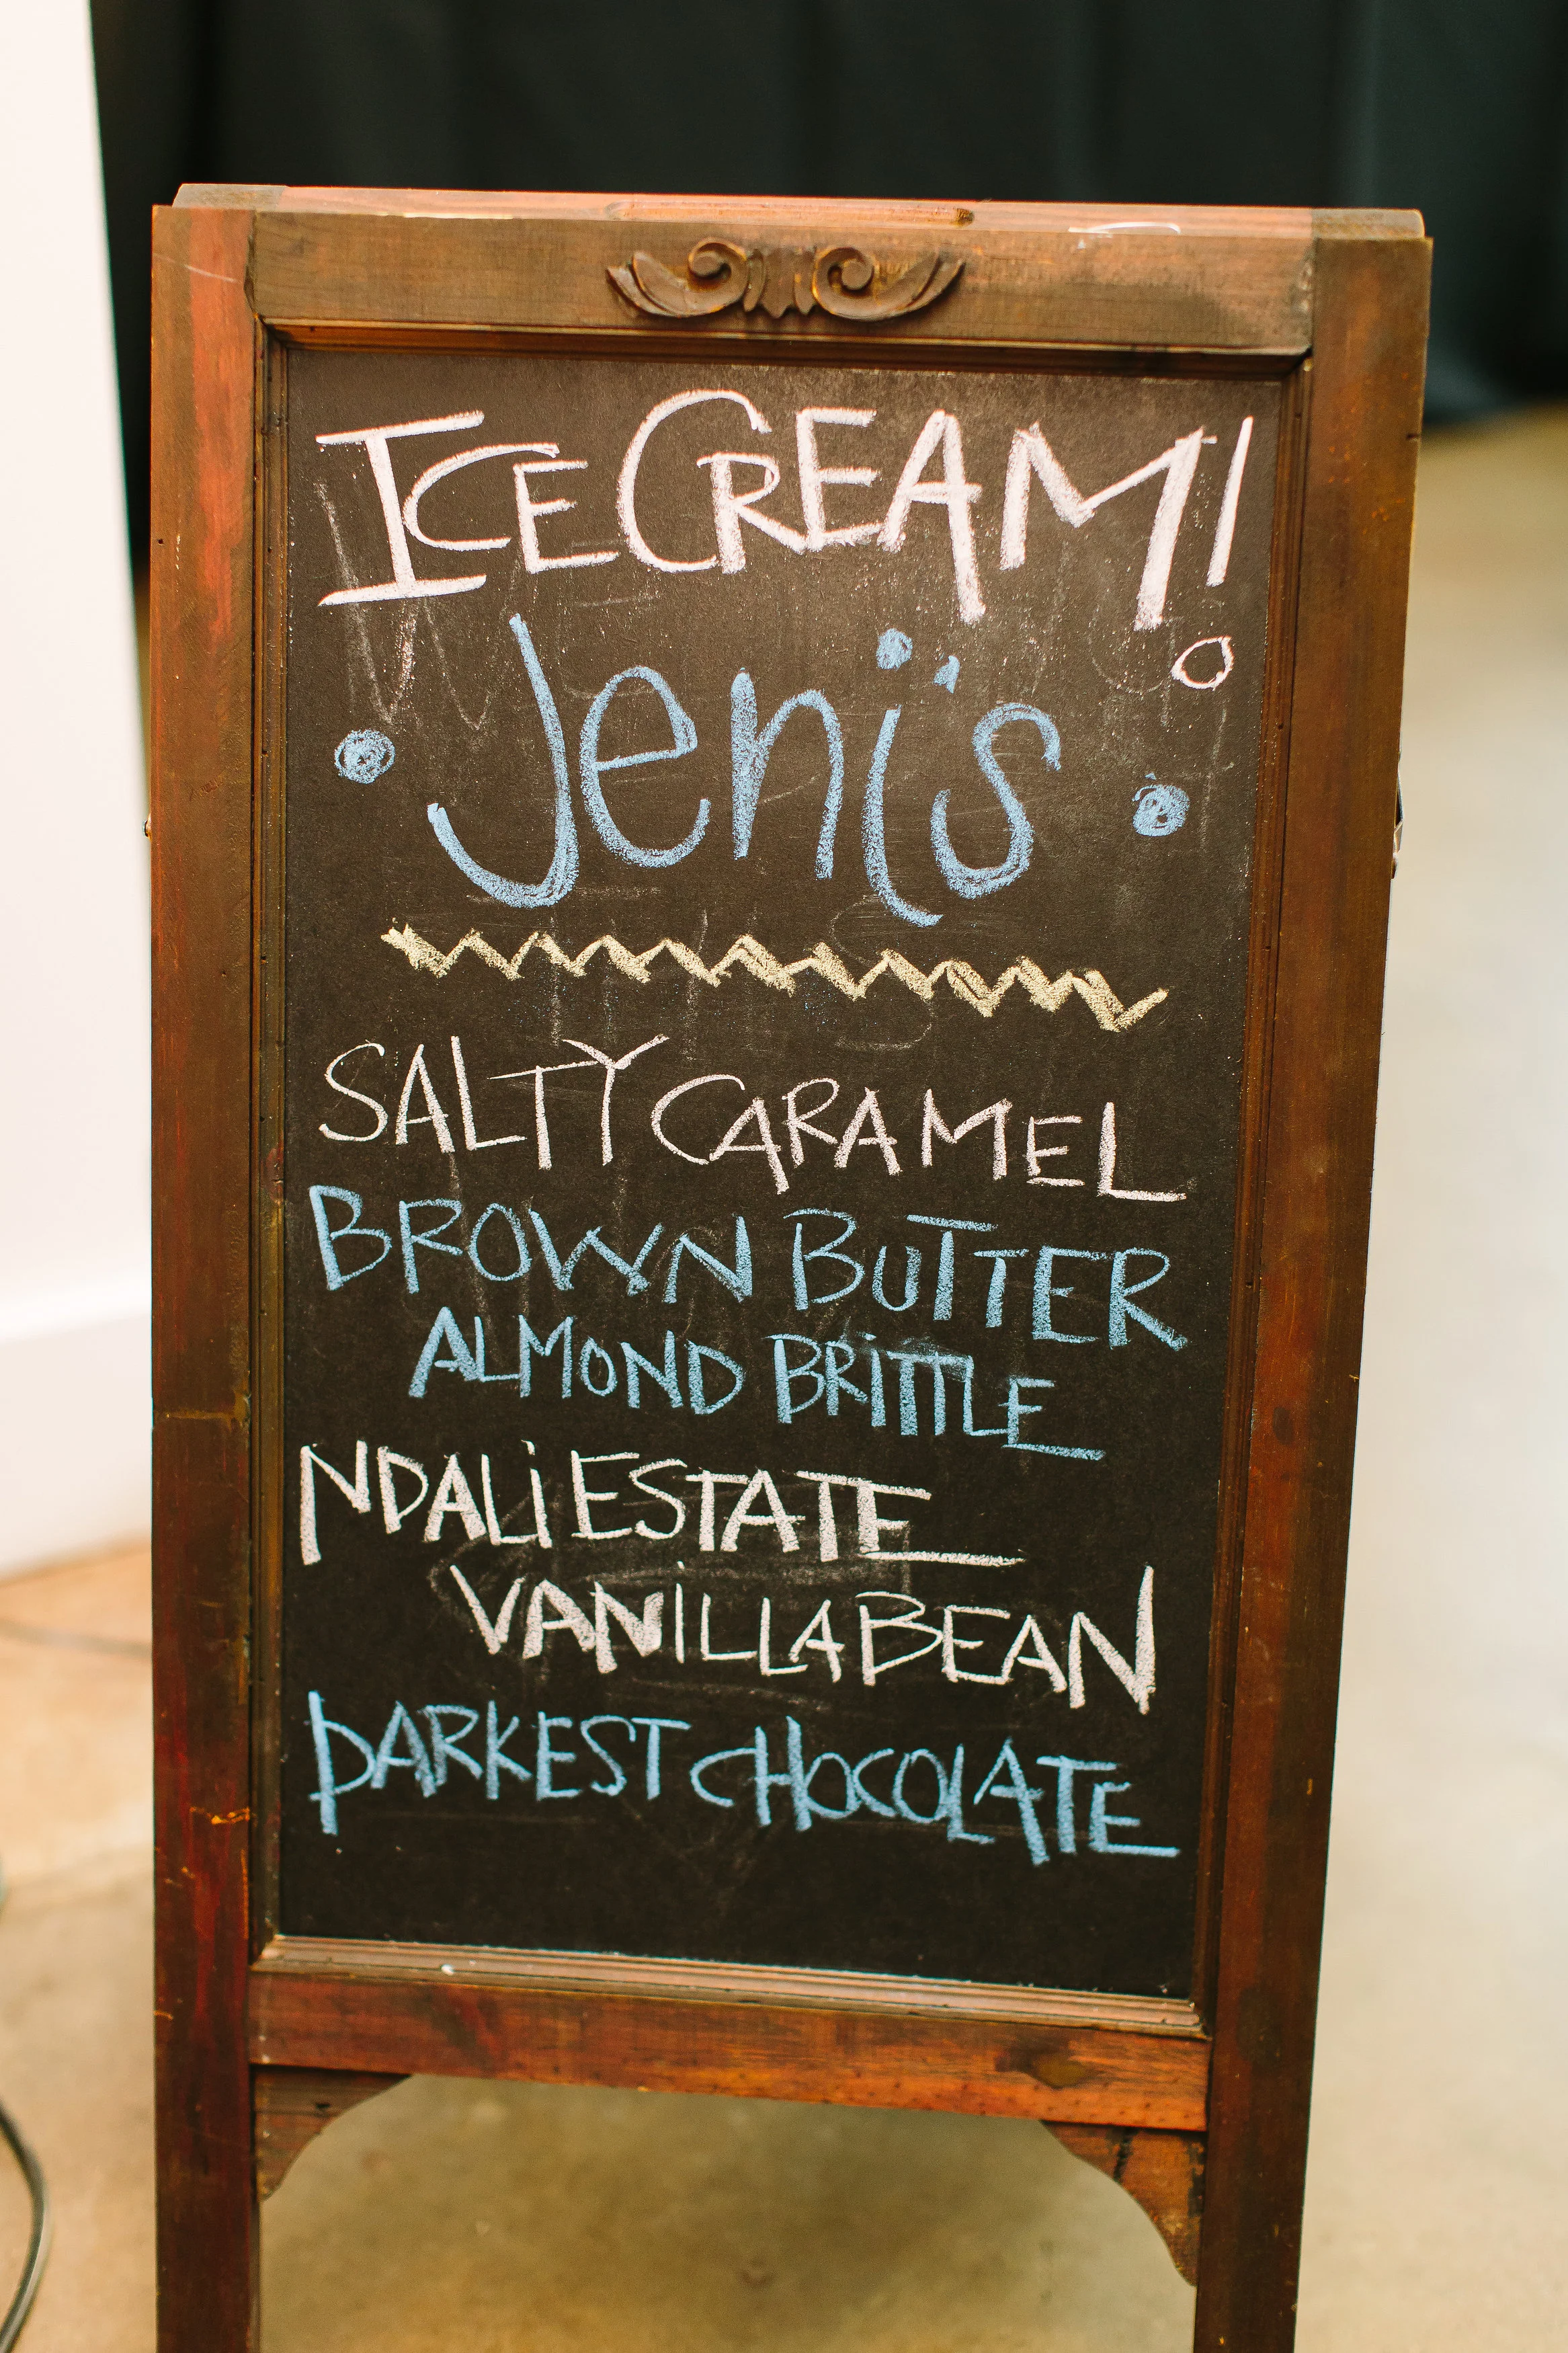 ICE CREAM!
Jeni's
SALTY CARAMEL
BROWN BUTTER
ALMOND BRiTTLE
NDALi ESTATE
VANiLLA BEAN
DARKEST CHOCOLATE